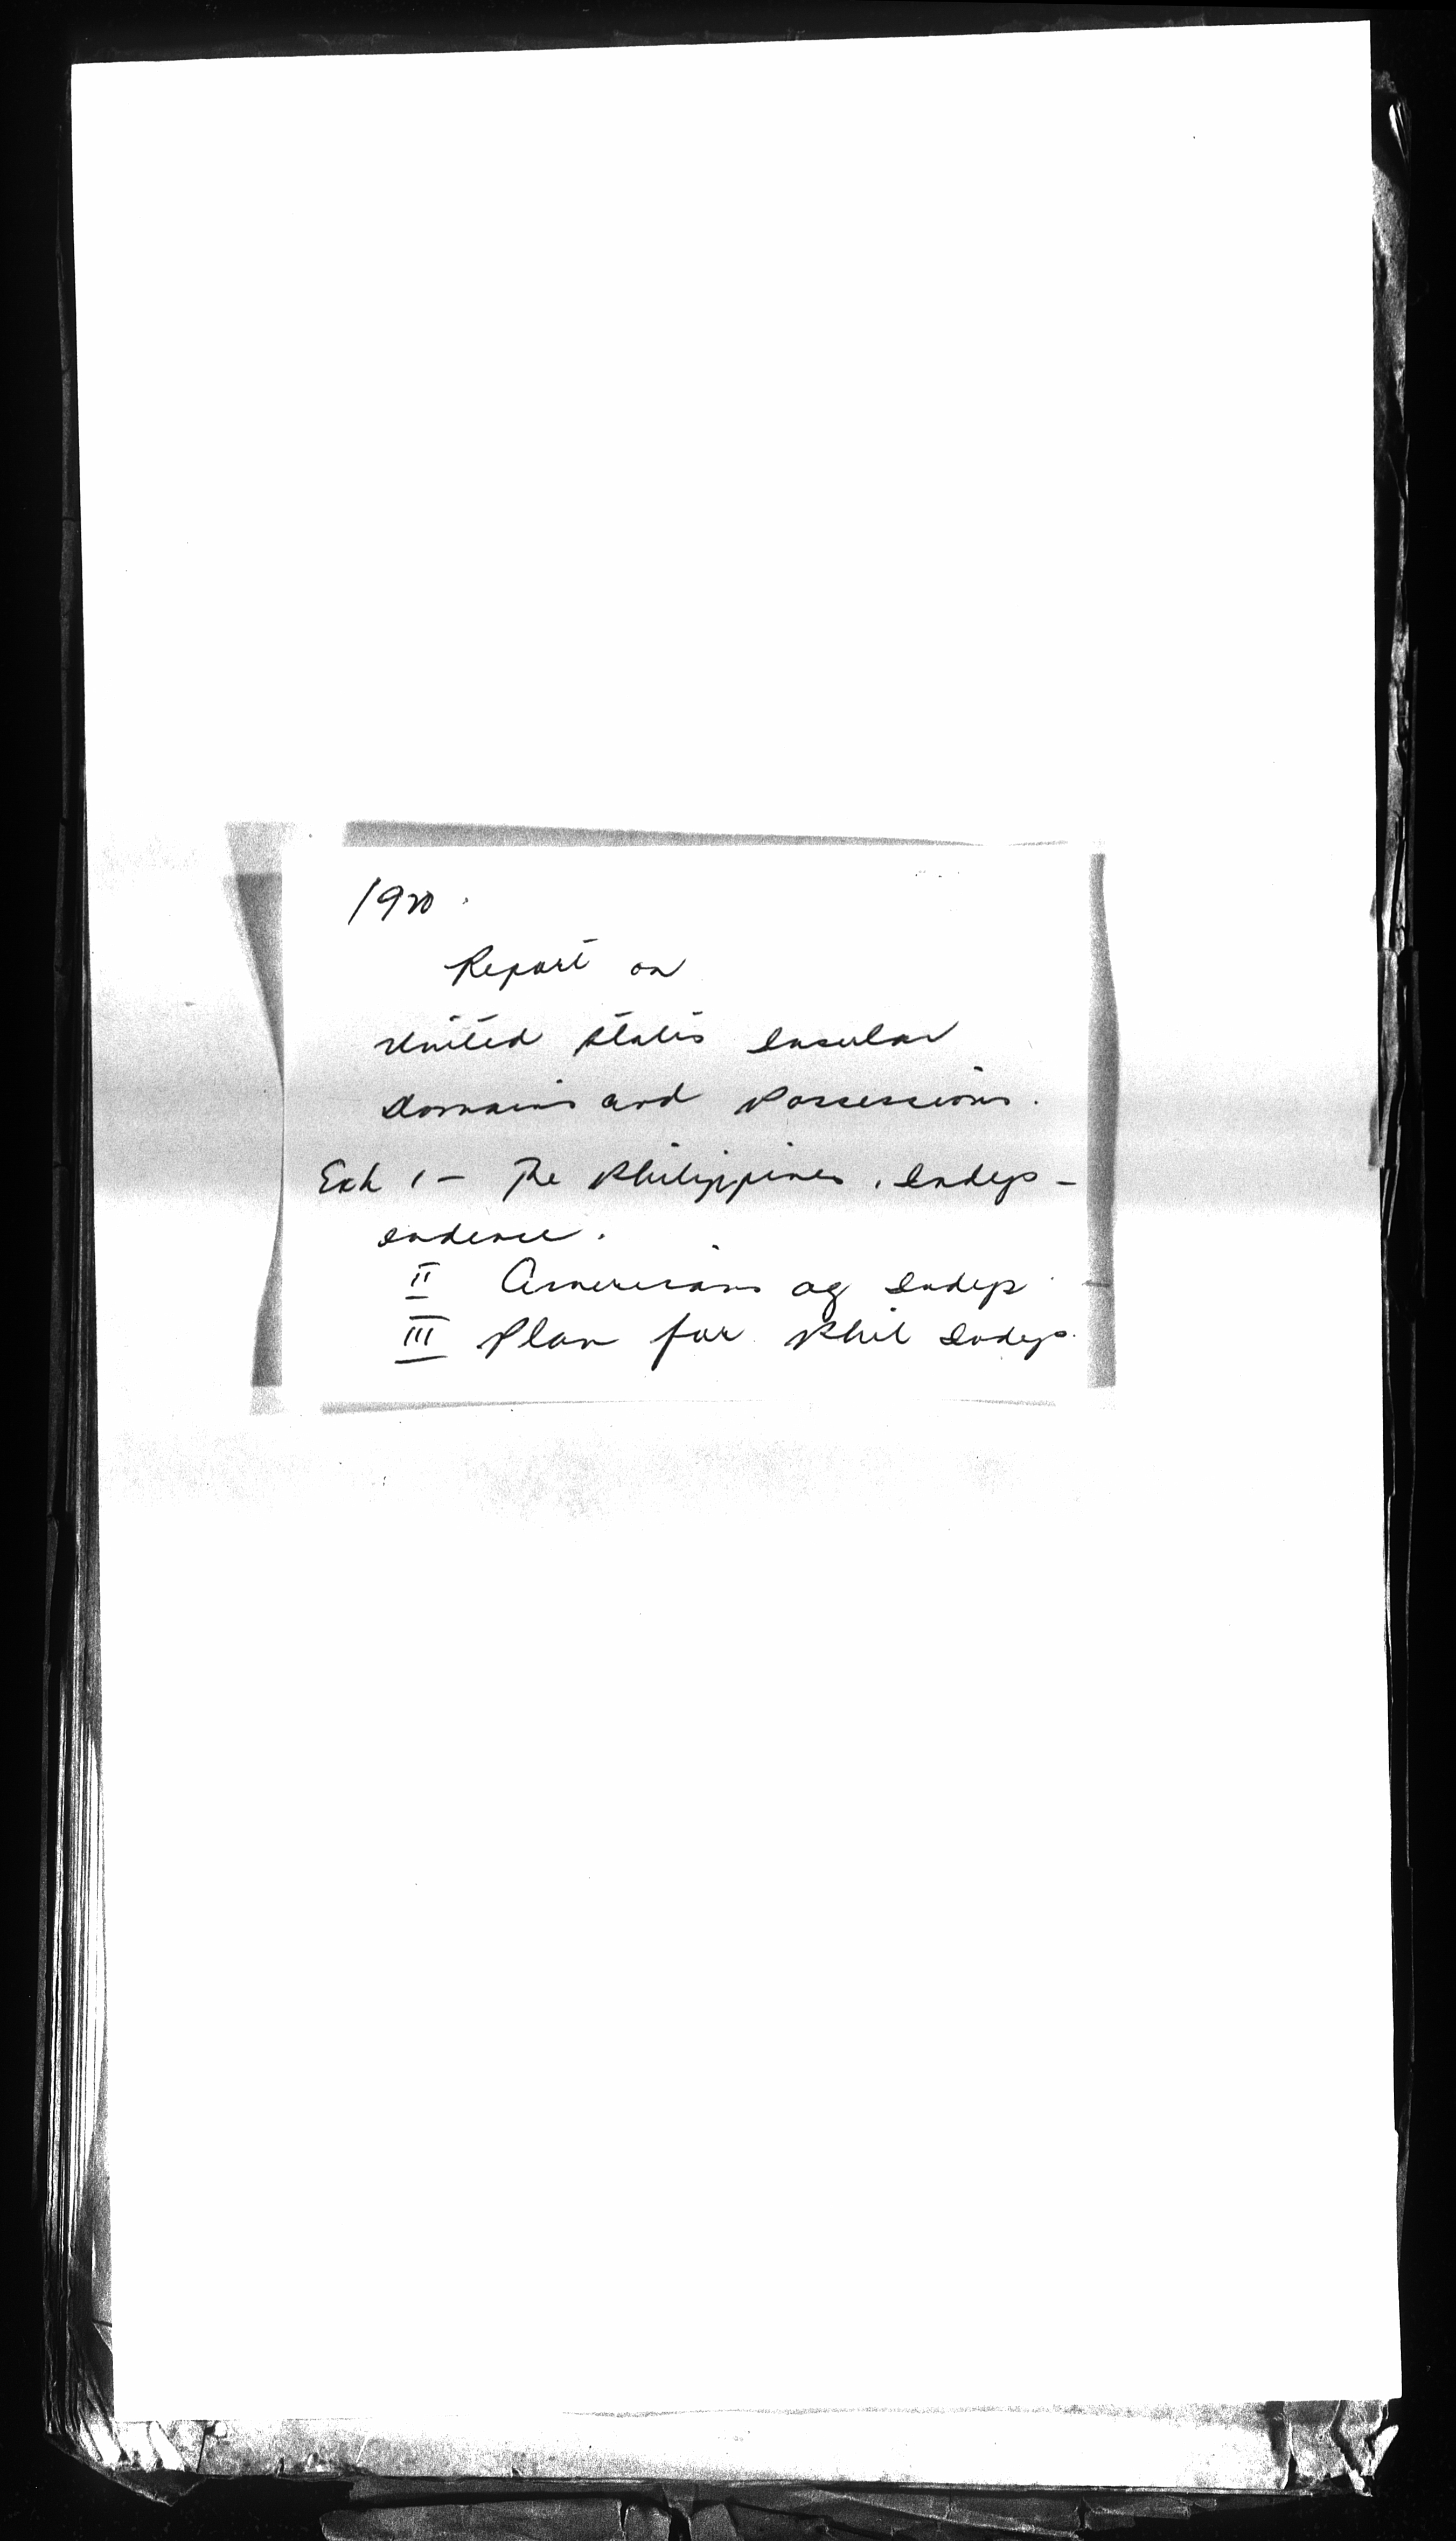 1920.
Report on
United States Insular
Domains and Possessions.
Exh 1 - The Philippines, Indep-
endence.
II Americans ag Indep
III Plan for Phil Indep.